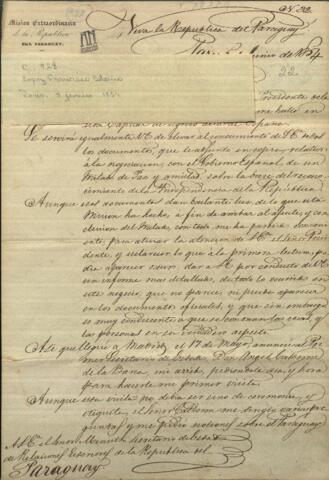 Nº 22.
Mision Extraordinaria
de la Republica
DEL PARAGUAY.
Viva la Republica del Paraguay
Paris, Enero de 1854
C. 928
Lopez Francisco Solano
Paris, 3 enero 1854
22
Se servirá igualmente V.E. de elevar al conocimiento de S.E. todos
los documentos, que le adjunto en copia, relativos
á la negociacion, con el Gobierno Español, de un
Tratado de Paz y amistad sobre la base del recono
cimiento de la Independencia de la Republica
Aunque esos documentos dan bastante luz de lo que esta
Mision ha hecho, á fin de
clusion del Tratado, con todo me ha parecido conveni
ente, para atraer la atencion de S.E. el Señor Presi
dente, y esclarecer lo que á la primera lectura, po
dria aparecer oscuro, dar á V.E. por conducto de V.E.
un informe mas detallado, de todo lo ocurrido en
este negocio, que no parece, ni puede aparecer
en los documentos oficiales, y que sin embargo
es muy conducente á que se conozcan las cosas, y
las personas en su verdadero aspecto.
Así que llegué á Madrid, el 17 de Mayo, anuncié al Pri
mer Secretario de Estado Don Angel Calderon
de la Barca, mi arribo, pidiendole dia, y hora
para hacerle mi primer visita.
Aunque esta visita no debia ser sino de ceremonia, y
etiqueta, el Señor Calderon me dirigió varias pre
guntas, y me pidió nociones sobre el Paraguay
A S.E. el Señor Ministro Secretario de Estado
de Relaciones Esteriores de la Republica del
Paraguay